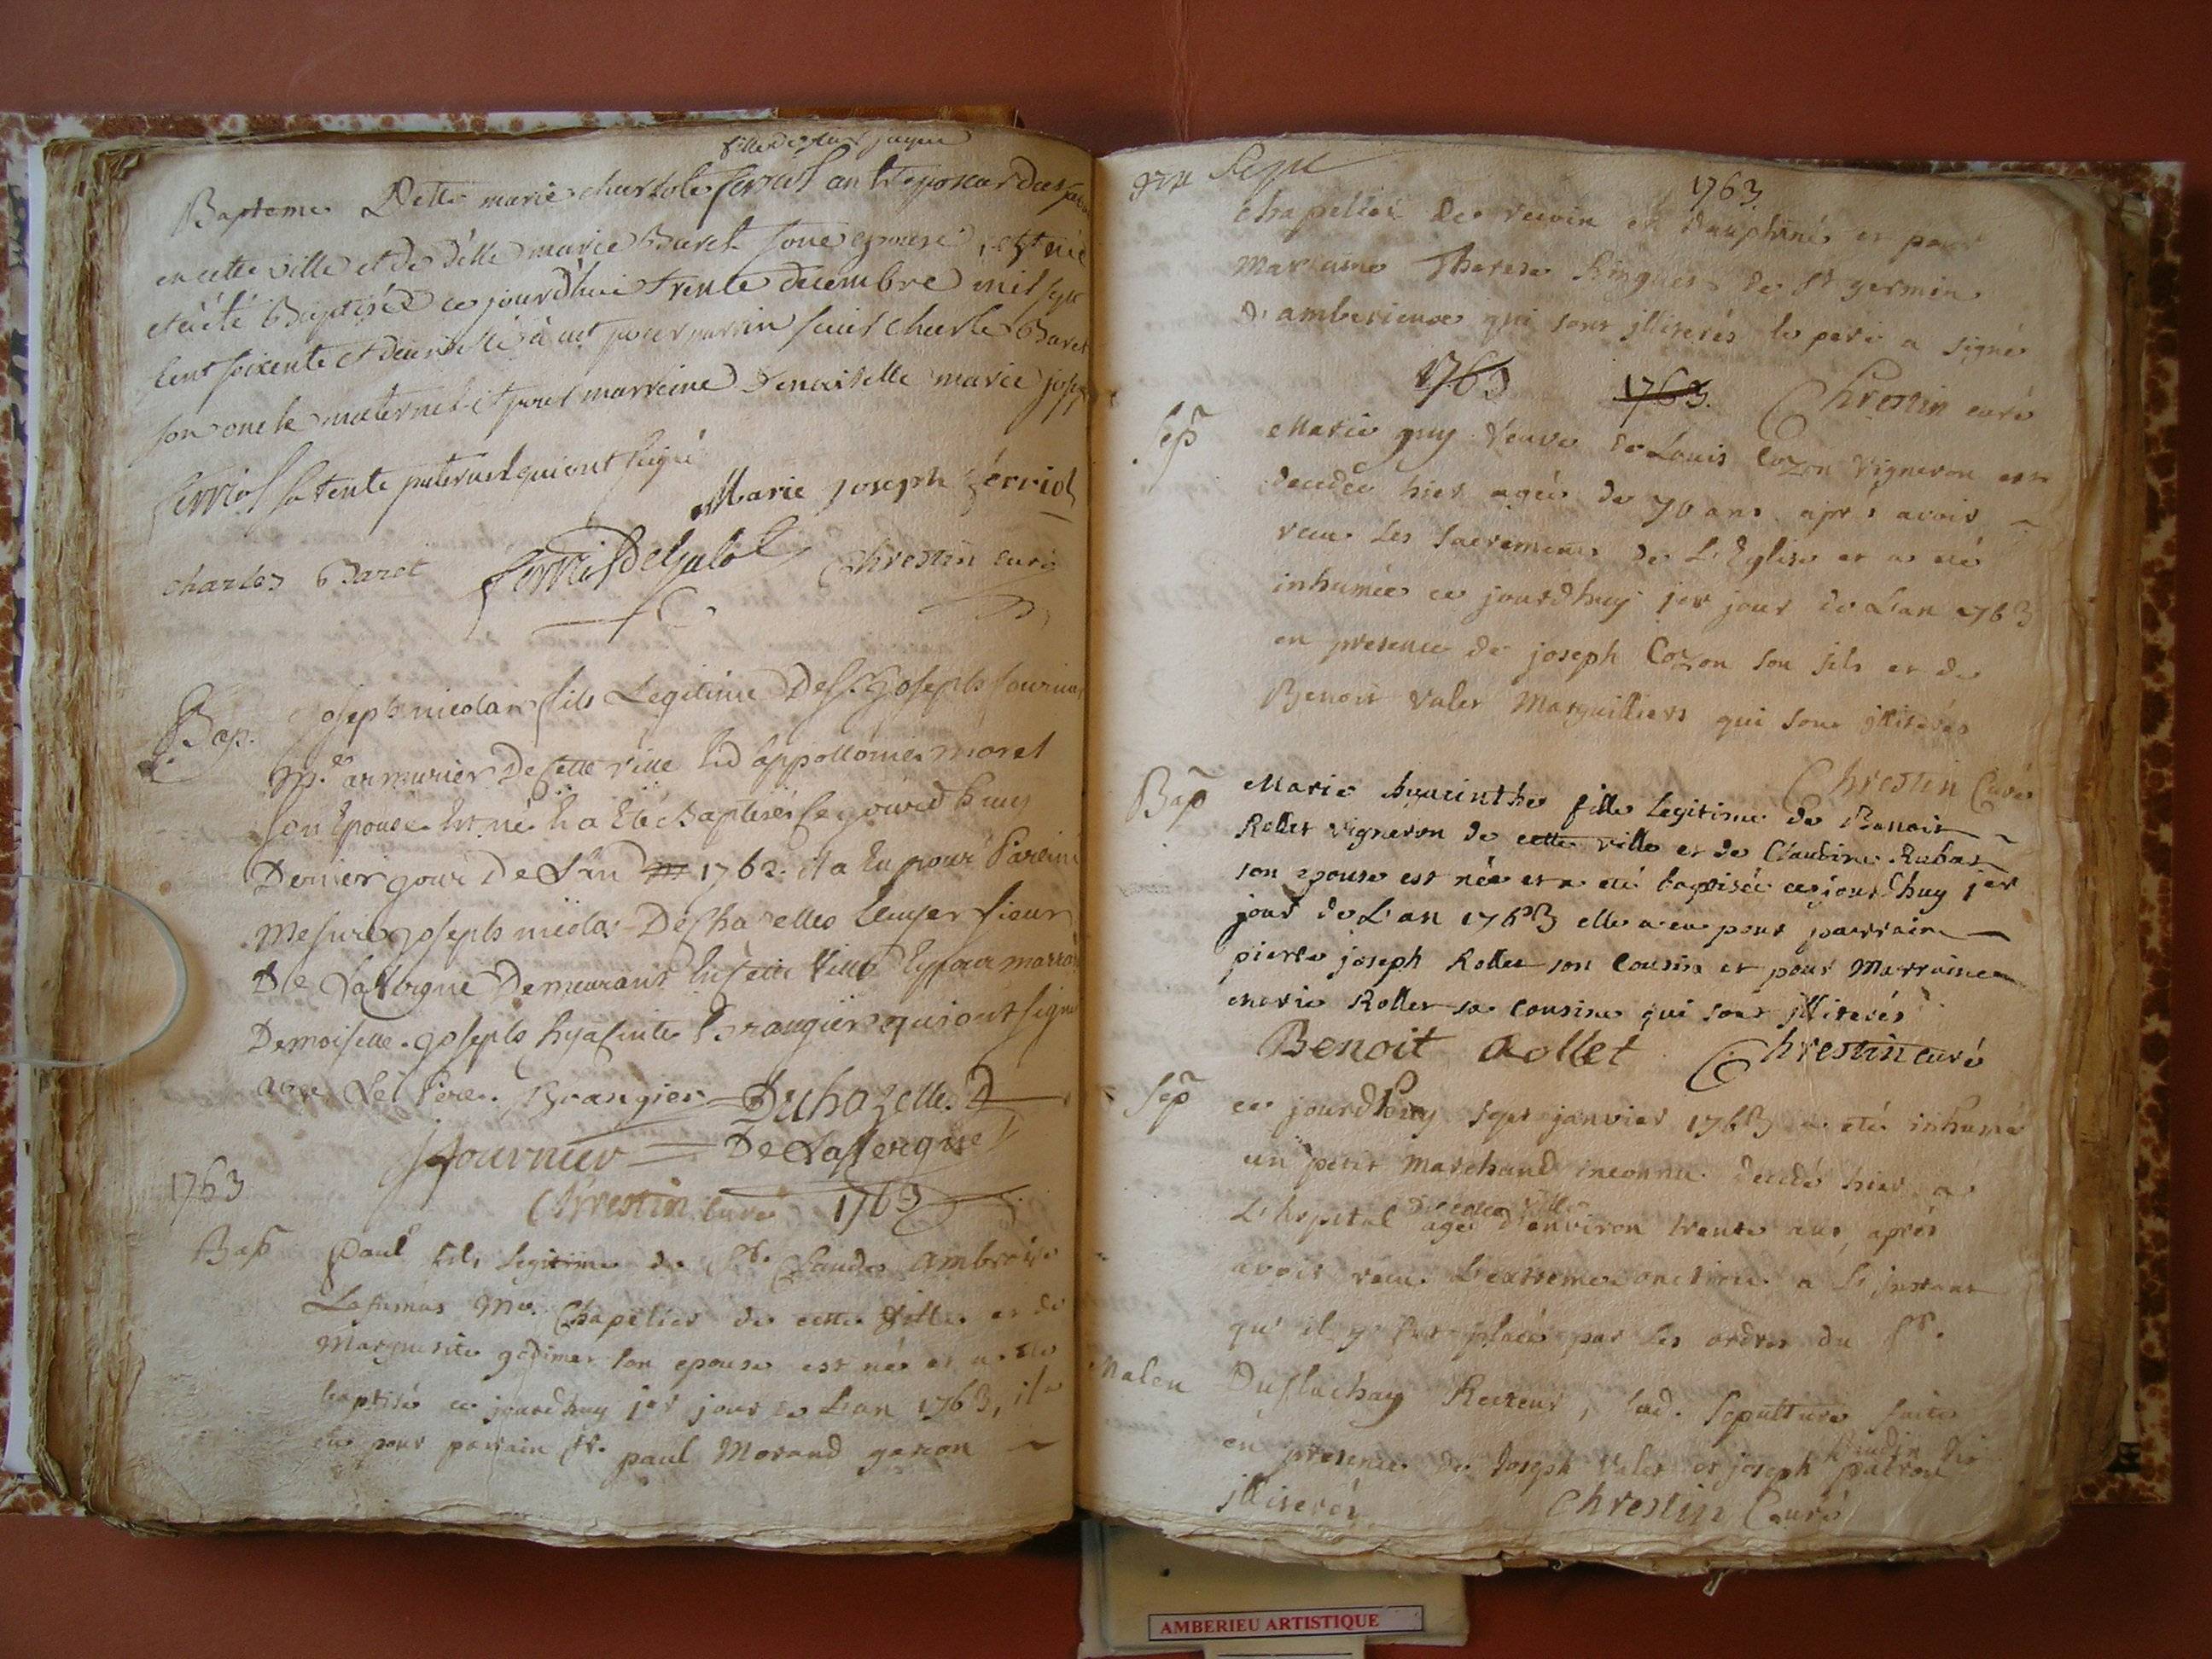 Bapteme Delle marie charlote ferriol
en cette ville et de delle marie Baret son epouse, est née
et a été Baptisée ce jourd'hui trente decembre mil sept
cent soixente et deux elle a eut pour parrin Charle Baret
son oncle maternel et pour marreine Demoiselle marie josep
ferriol sa tente paternel qui ont signé
Marie joseph ferriol
charles Baret ferriol Chrestin curé
Bap. joseph nicolas fils Legitime De Sr. joseph fournier
Me. armurier De cette ville Et d'appollonie moret
son Epouse Est né Et a Eté Baptisé Ce jourd'huy
Dernier jour De L'an 1762. il a Eu pour Parein
Messire joseph nicolas Dechazelles Ecuyer sieur
De Lavergne Demeurant En cette Ville Et pour marrain
Demoiselle joseph hyacinte Brangier qui ont signé
avec Le Pere. Brangier Duhazelle D
fournier De Lavergne
1763
Chrestin Curé 1763
Bap Paul fils legitime de Sr. Claude Ambroise
Lafumas Me. Chapelier de cette Ville et de
Marguerite son epouse est né et a été
baptisé ce jourdhuy 1er jour de L'an 1763, il a
eu pour parrain Sr. paul Morand garson
1763
chapellier de en dauphiné et pour
Marraine Therese de St germin
d'amberieux qui sont jlliterés le pere a signé
1763 1763. Chrestin curé
Sep Marie guy veuve de Louis Cozon Vigneron est
decedée hier agée de 70 ans aprés avoir
receu Les Sacrements de L'Eglise et a été
inhumée ce jourdhuy 1er jour de L'an 1763
en presence de joseph Cozon son fils et de
Benoit Valer Marguilliers qui sont jlliterés
Chrestin Curé
Bap Marie hyacinthe fille legitime de Benoit
Rollet vigneron de cette ville et de Claudine Rubat
son epouse est née et a eté baptisée ce jourdhuy 1er
jour de L'an 1763 elle a eu pour parrain
pierre joseph Rollet son Cousin et pour Marraine
marie Rollet sa cousine qui sont jlliterés
Benoit Rollet Chrestin curé
Sep ce jourdhuy sept janvier 1763 a eté inhumé
un petit Marchand inconnu decedé hier a
L'hopital de cette ville agé d'environ trente ans, aprés
avoir receu L'extreme onction a L'instant
qu'il y fut placé par les ordres du Sr.
Dusluchay Recteur, lad. Sepulture faite
en presence de Joseph Valer et joseph
jlliterés Chrestin Curé
AMBERIEU ARTISTIQUE